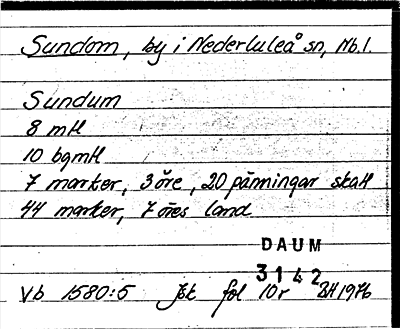 Sundom, by i Nederluleå sn, Nb.l.
Sundum
8 mtl
10 bgmtl
7 marker, 3 öre, 20 pänningar skatt
44 marker, 7 öres land
DAUM
3142
Vb 1580:5 Jbk fol 10r BH 1976